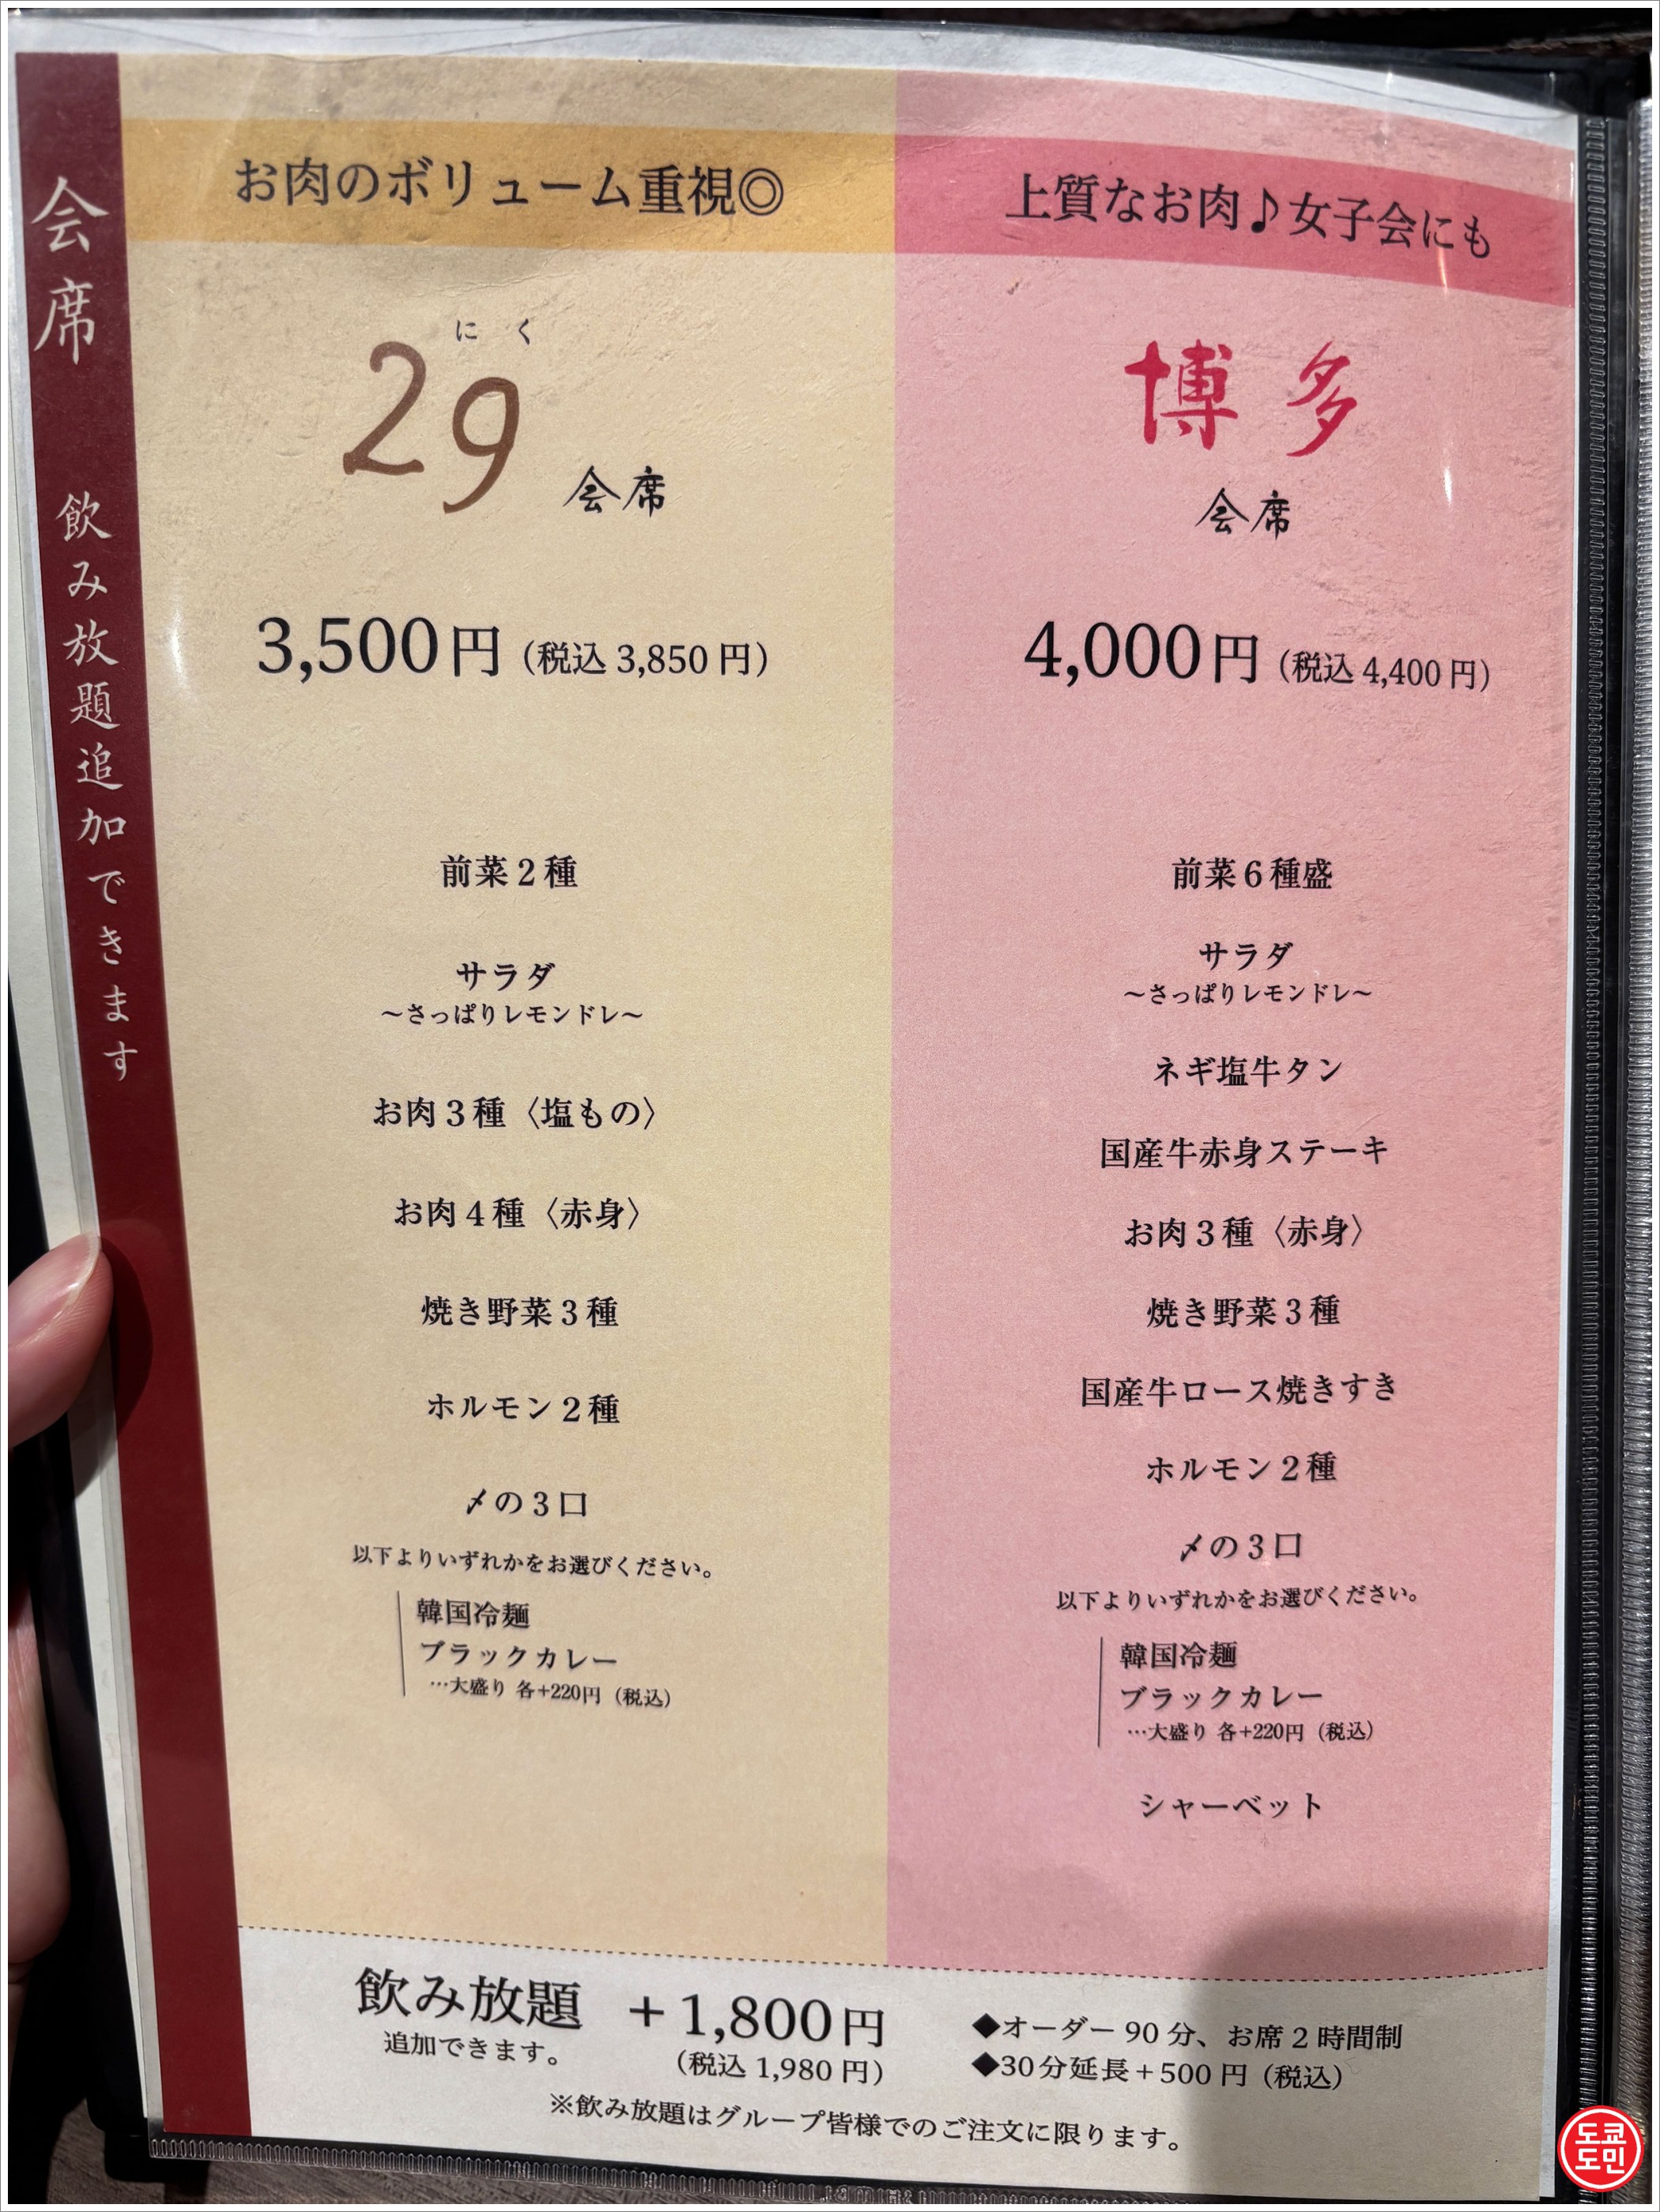 会席 飲み放題追加できます
お肉のボリューム重視◎
にく
29
会席
3,500円（税込 3,850 円）
前菜２種
サラダ
～さっぱりレモンドレ～
お肉３種〈塩もの〉
お肉４種〈赤身〉
焼き野菜３種
ホルモン２種
〆の３口
以下よりいずれかをお選びください。
韓国冷麺
ブラックカレー
…大盛り 各+220円（税込）
上質なお肉♪女子会にも
博多
会席
4,000円（税込 4,400 円）
前菜６種盛
サラダ
～さっぱりレモンドレ～
ネギ塩牛タン
国産牛赤身ステーキ
お肉３種〈赤身〉
焼き野菜３種
国産牛ロース焼きすき
ホルモン２種
〆の３口
以下よりいずれかをお選びください。
韓国冷麺
ブラックカレー
…大盛り 各+220円（税込）
シャーベット
飲み放題 ＋1,800円
追加できます。 （税込 1,980 円）
◆オーダー 90 分、お席 2 時間制
◆30分延長＋500 円（税込）
※飲み放題はグループ皆様でのご注文に限ります。
도쿄
도민